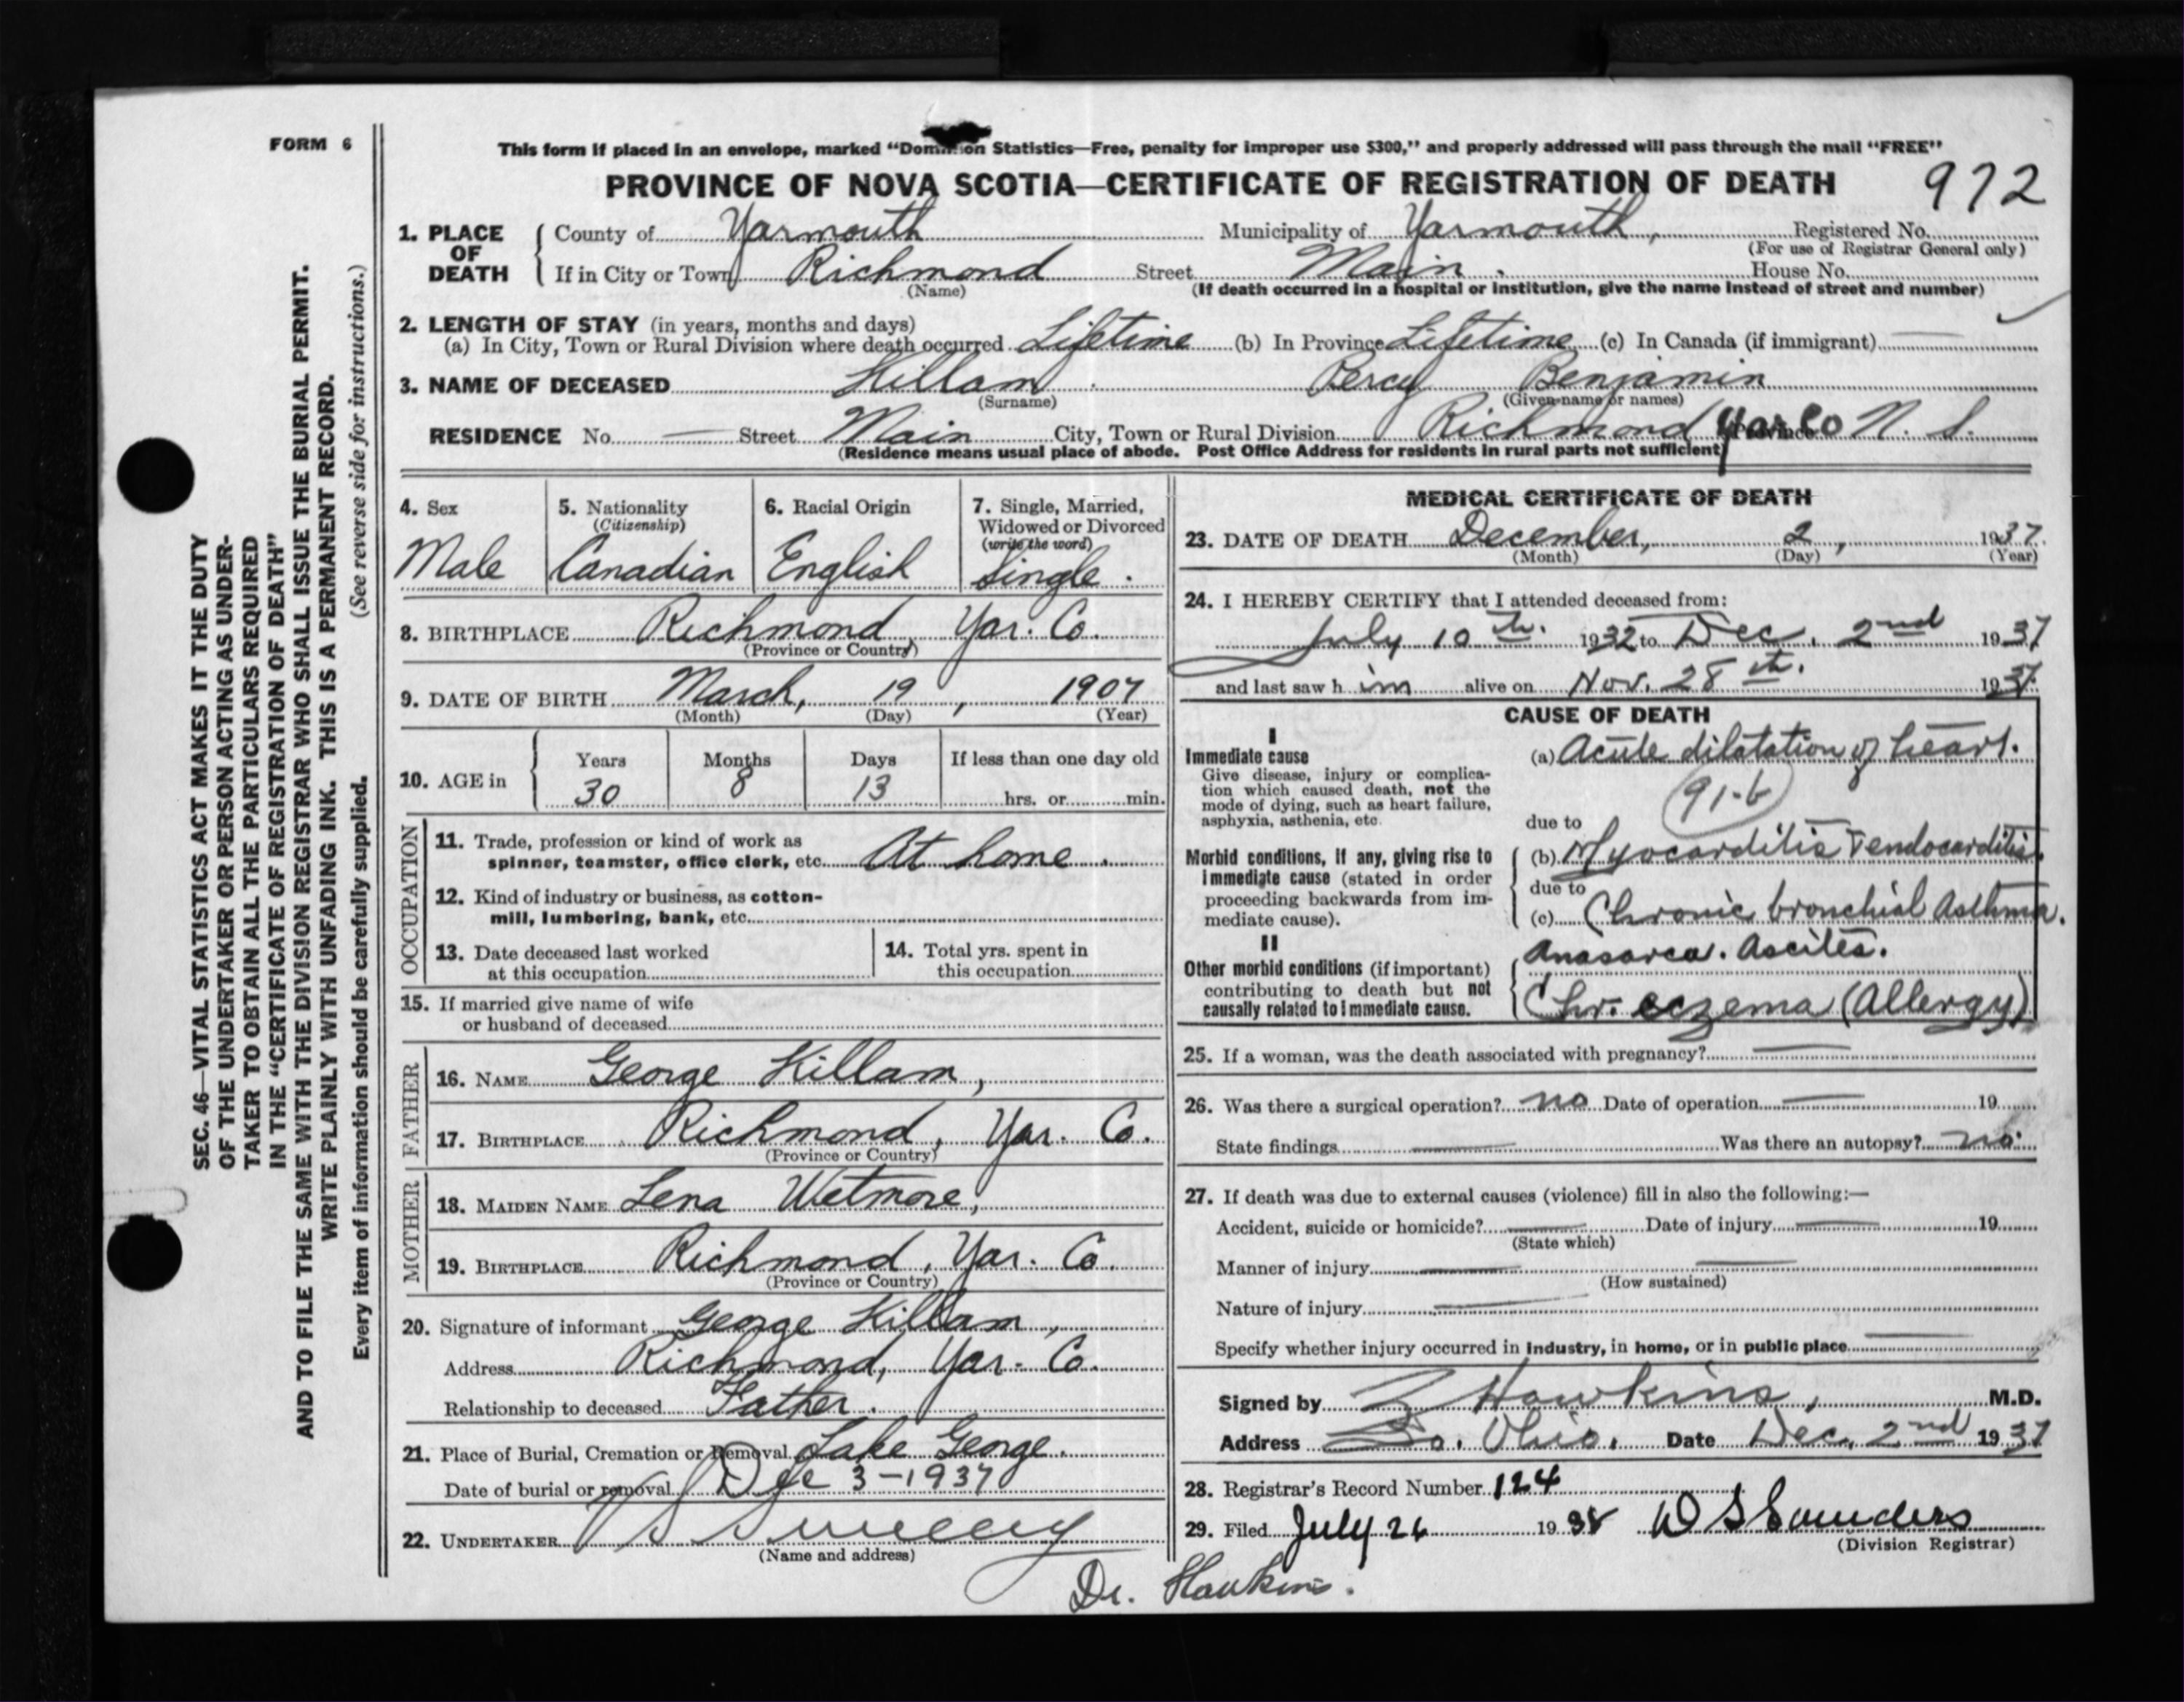 FORM 6
This form if placed in an envelope, marked "Dominion Statistics—Free, penalty for improper use $300," and properly addressed will pass through the mail "FREE"
PROVINCE OF NOVA SCOTIA—CERTIFICATE OF REGISTRATION OF DEATH 972
1. PLACE OF DEATH
County of Yarmouth Municipality of Yarmouth, Registered No.
(For use of Registrar General only)
If in City or Town Richmond Street Main. House No.
(Name) (If death occurred in a hospital or institution, give the name instead of street and number)
2. LENGTH OF STAY (in years, months and days)
(a) In City, Town or Rural Division where death occurred Lifetime (b) In Province Lifetime (c) In Canada (if immigrant) —
3. NAME OF DECEASED Killam Percy Benjamin
(Surname) (Given name or names)
RESIDENCE No. — Street Main City, Town or Rural Division Richmond Yar Co Province N. S.
(Residence means usual place of abode. Post Office Address for residents in rural parts not sufficient)
4. Sex
Male
5. Nationality
(Citizenship)
Canadian
6. Racial Origin
English
7. Single, Married,
Widowed or Divorced
(write the word)
Single.
8. BIRTHPLACE Richmond, Yar. Co.
(Province or Country)
9. DATE OF BIRTH March, 19, 1907
(Month) (Day) (Year)
10. AGE in
Years Months Days If less than one day old
30 8 13 hrs. or min.
OCCUPATION
11. Trade, profession or kind of work as
spinner, teamster, office clerk, etc. At home.
12. Kind of industry or business, as cotton-
mill, lumbering, bank, etc.
13. Date deceased last worked
at this occupation
14. Total yrs. spent in
this occupation
15. If married give name of wife
or husband of deceased
FATHER
16. NAME George Killam,
17. BIRTHPLACE Richmond, Yar. Co.
(Province or Country)
MOTHER
18. MAIDEN NAME Lena Wetmore,
19. BIRTHPLACE Richmond, Yar. Co.
(Province or Country)
20. Signature of informant George Killam,
Address Richmond, Yar. Co.
Relationship to deceased Father.
21. Place of Burial, Cremation or Removal Lake George.
Date of burial or removal Dec 3-1937
22. UNDERTAKER V S Sweeny
(Name and address)
MEDICAL CERTIFICATE OF DEATH
23. DATE OF DEATH December, 2, 1937.
(Month) (Day) (Year)
24. I HEREBY CERTIFY that I attended deceased from:
July 10th. 1932 to Dec. 2nd 1937
and last saw him alive on Nov. 28th. 1937.
CAUSE OF DEATH
I
Immediate cause
Give disease, injury or complica-
tion which caused death, not the
mode of dying, such as heart failure,
asphyxia, asthenia, etc.
(a) Acute dilatation of heart.
91-b
due to
Morbid conditions, if any, giving rise to
immediate cause (stated in order
proceeding backwards from im-
mediate cause).
(b) Myocarditis + endocarditis.
due to
(c) Chronic bronchial Asthma.
II
Other morbid conditions (if important)
contributing to death but not
causally related to immediate cause.
Anasarca. Ascites.
Chr. eczema (Allergy)
25. If a woman, was the death associated with pregnancy? —
26. Was there a surgical operation? no Date of operation — 19
State findings — Was there an autopsy? no.
27. If death was due to external causes (violence) fill in also the following:—
Accident, suicide or homicide? — Date of injury — 19
(State which)
Manner of injury —
(How sustained)
Nature of injury —
Specify whether injury occurred in industry, in home, or in public place —
Signed by Z Hawkins, M.D.
Address So. Ohio. Date Dec. 2nd 1937
28. Registrar's Record Number 124
29. Filed July 26 1938 W S Saunders
(Division Registrar)
Dr. Hawkins.
SEC. 46—VITAL STATISTICS ACT MAKES IT THE DUTY
OF THE UNDERTAKER OR PERSON ACTING AS UNDER-
TAKER TO OBTAIN ALL THE PARTICULARS REQUIRED
IN THE "CERTIFICATE OF REGISTRATION OF DEATH"
AND TO FILE THE SAME WITH THE DIVISION REGISTRAR WHO SHALL ISSUE THE BURIAL PERMIT.
WRITE PLAINLY WITH UNFADING INK. THIS IS A PERMANENT RECORD.
Every item of information should be carefully supplied. (See reverse side for instructions.)